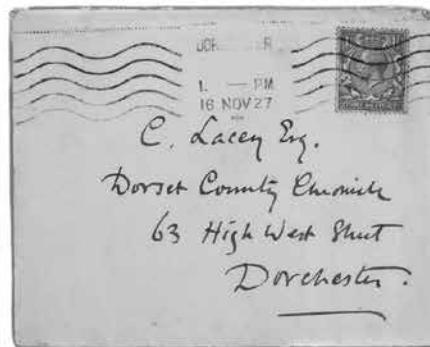 1. — PM
16 NOV 27
C. Lacey Esq.
Dorset County Chronicle
63 High West Street
Dorchester.